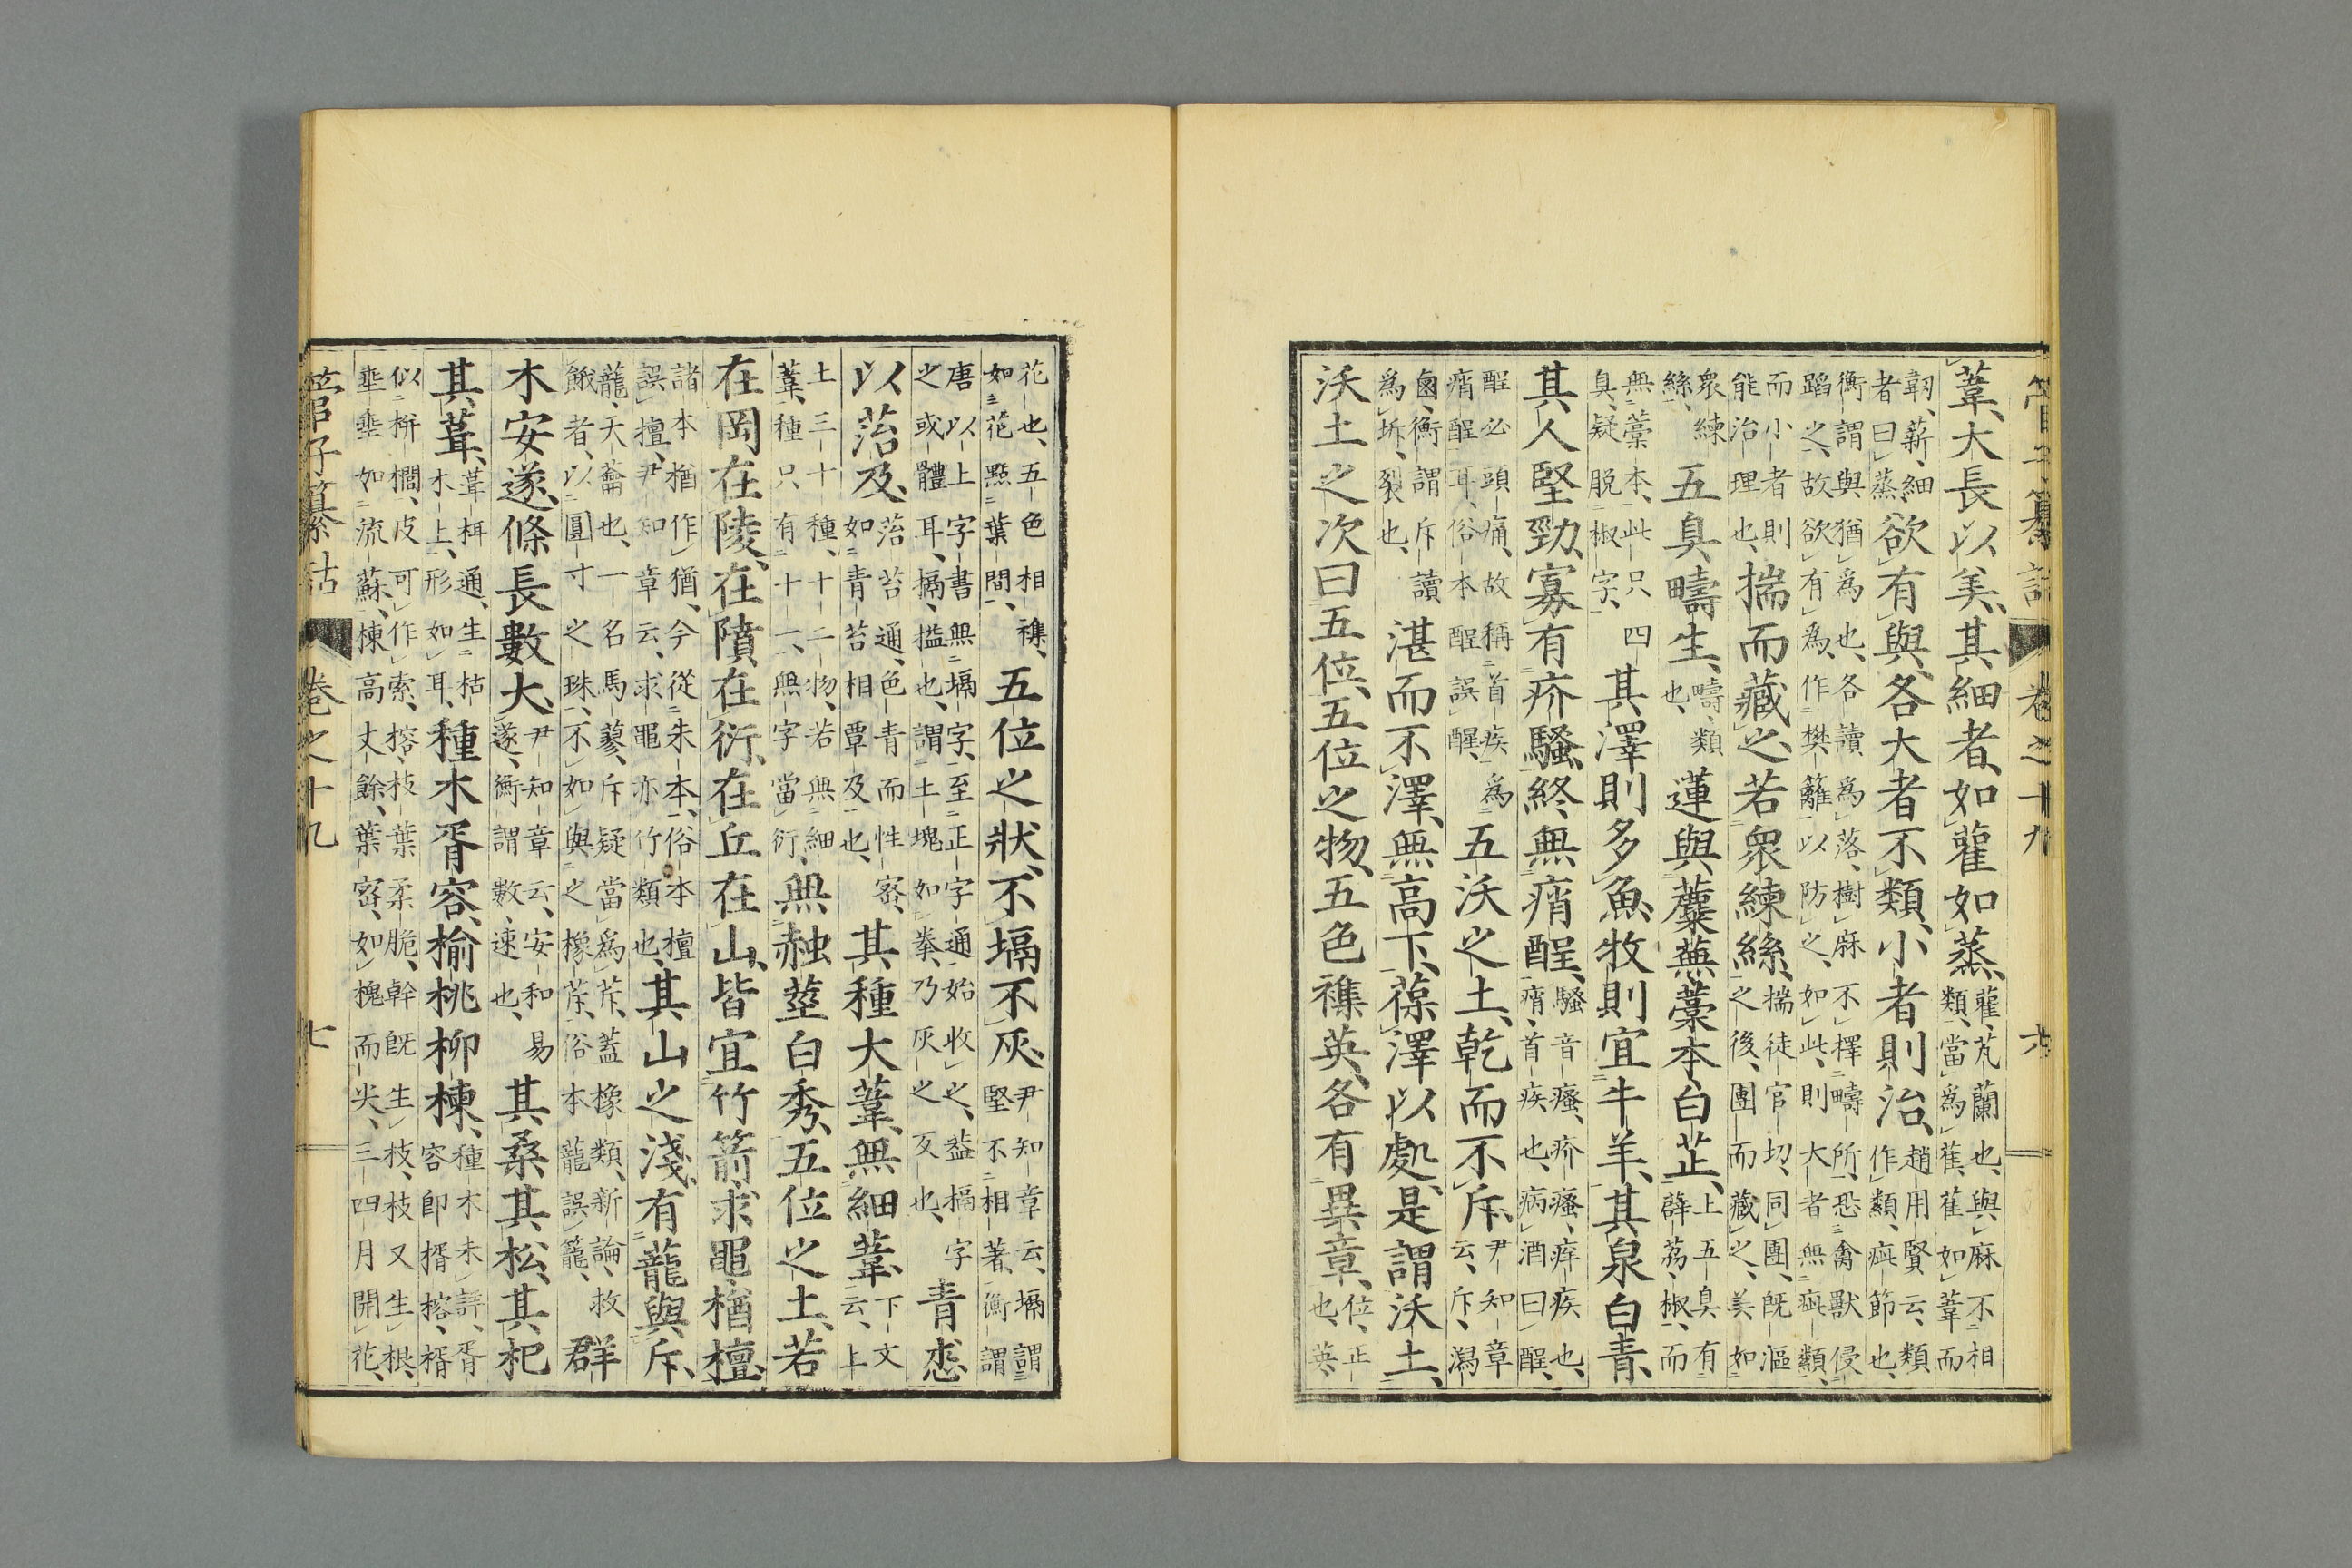 管子纂詁 卷之十九 六
葦、大長以美、其細者、如雚如蒸、雚、芄蘭也、與麻不相類、當爲萑、萑如葦而
韌、薪、細者曰蒸、欲有與各、大者不類、小者則治、趙用賢云、類作纇、疵節也、
衡謂與猶爲也、各讀爲落、樹麻不擇疇所、恐禽獸侵蹈之、故欲有爲、作樊籬以防之、如此、則大者無疵纇、
而小者則能治理也、揣而藏之、若衆練絲、揣徒官切、同團、旣漚之後、團而藏之、美如
衆練絲、五臭疇生、疇、類也、蓮與蘪蕪藁本、白芷、上五臭有薜荔、椒、而
無藁本、此只四臭、疑脫椒字、其澤則多魚、牧則宜牛羊、其泉白青、
其人堅勁、寡有疥騷、終無痟酲、騷音瘙、疥瘙、痒疾也、痟、首疾也、病酒曰酲、
酲必頭痛、故稱首疾爲痟酲耳、俗本酲誤醒、五沃之土、乾而不斥、尹知章云、斥、潟
鹵、衡謂斥讀爲坼、裂也、湛而不澤、無高下、葆澤以處、是謂沃土、
沃土之次曰五位、五位之物、五色襍英、各有異章、位、正也、英、
花也、五色相襍、如花點葉間、五位之狀、不塥不灰、尹知章云、塥謂堅不相著、衡謂
唐以上字書無塥字、至正字通始收之、蓋搹字之或體耳、搹、搤也、謂土塊如拳、乃灰之反也、青怷
以菭及、菭苔通、色青而性密、如青苔相覃及也、其種大葦無細葦、下文云、上
土三十種、十二物、若無細葦、種只有十一、無字當衍、無赨莖白秀、五位之土、若
在岡在陵、在隫在衍、在丘在山、皆宜竹箭、求黽楢檀、
諸本楢作猶、今從朱本、俗本檀誤擅、尹知章云、求黽亦竹類也、其山之淺、有蘢與斥、
蘢、天蘥也、一名馬蓼、斥疑當爲芧、蓋橡類、新論、救餓者、以圓寸之珠、不如與之橡芧、俗本蘢誤籠、群
木安遂、條長數大、尹知章云、安和易遂、衡謂數、速也、其桑其松、其杞
其茸、茸栮通、生枯木上、形如耳、種木胥容、榆桃柳楝、種木未詳、胥容卽楈榕、楈
似栟櫚、皮可作索、榕、枝葉柔脆、幹旣生枝、枝又生根、垂垂如流蘇、楝高丈餘、葉密、如槐而尖、三四月開花、
管子纂詁 卷之十九 七